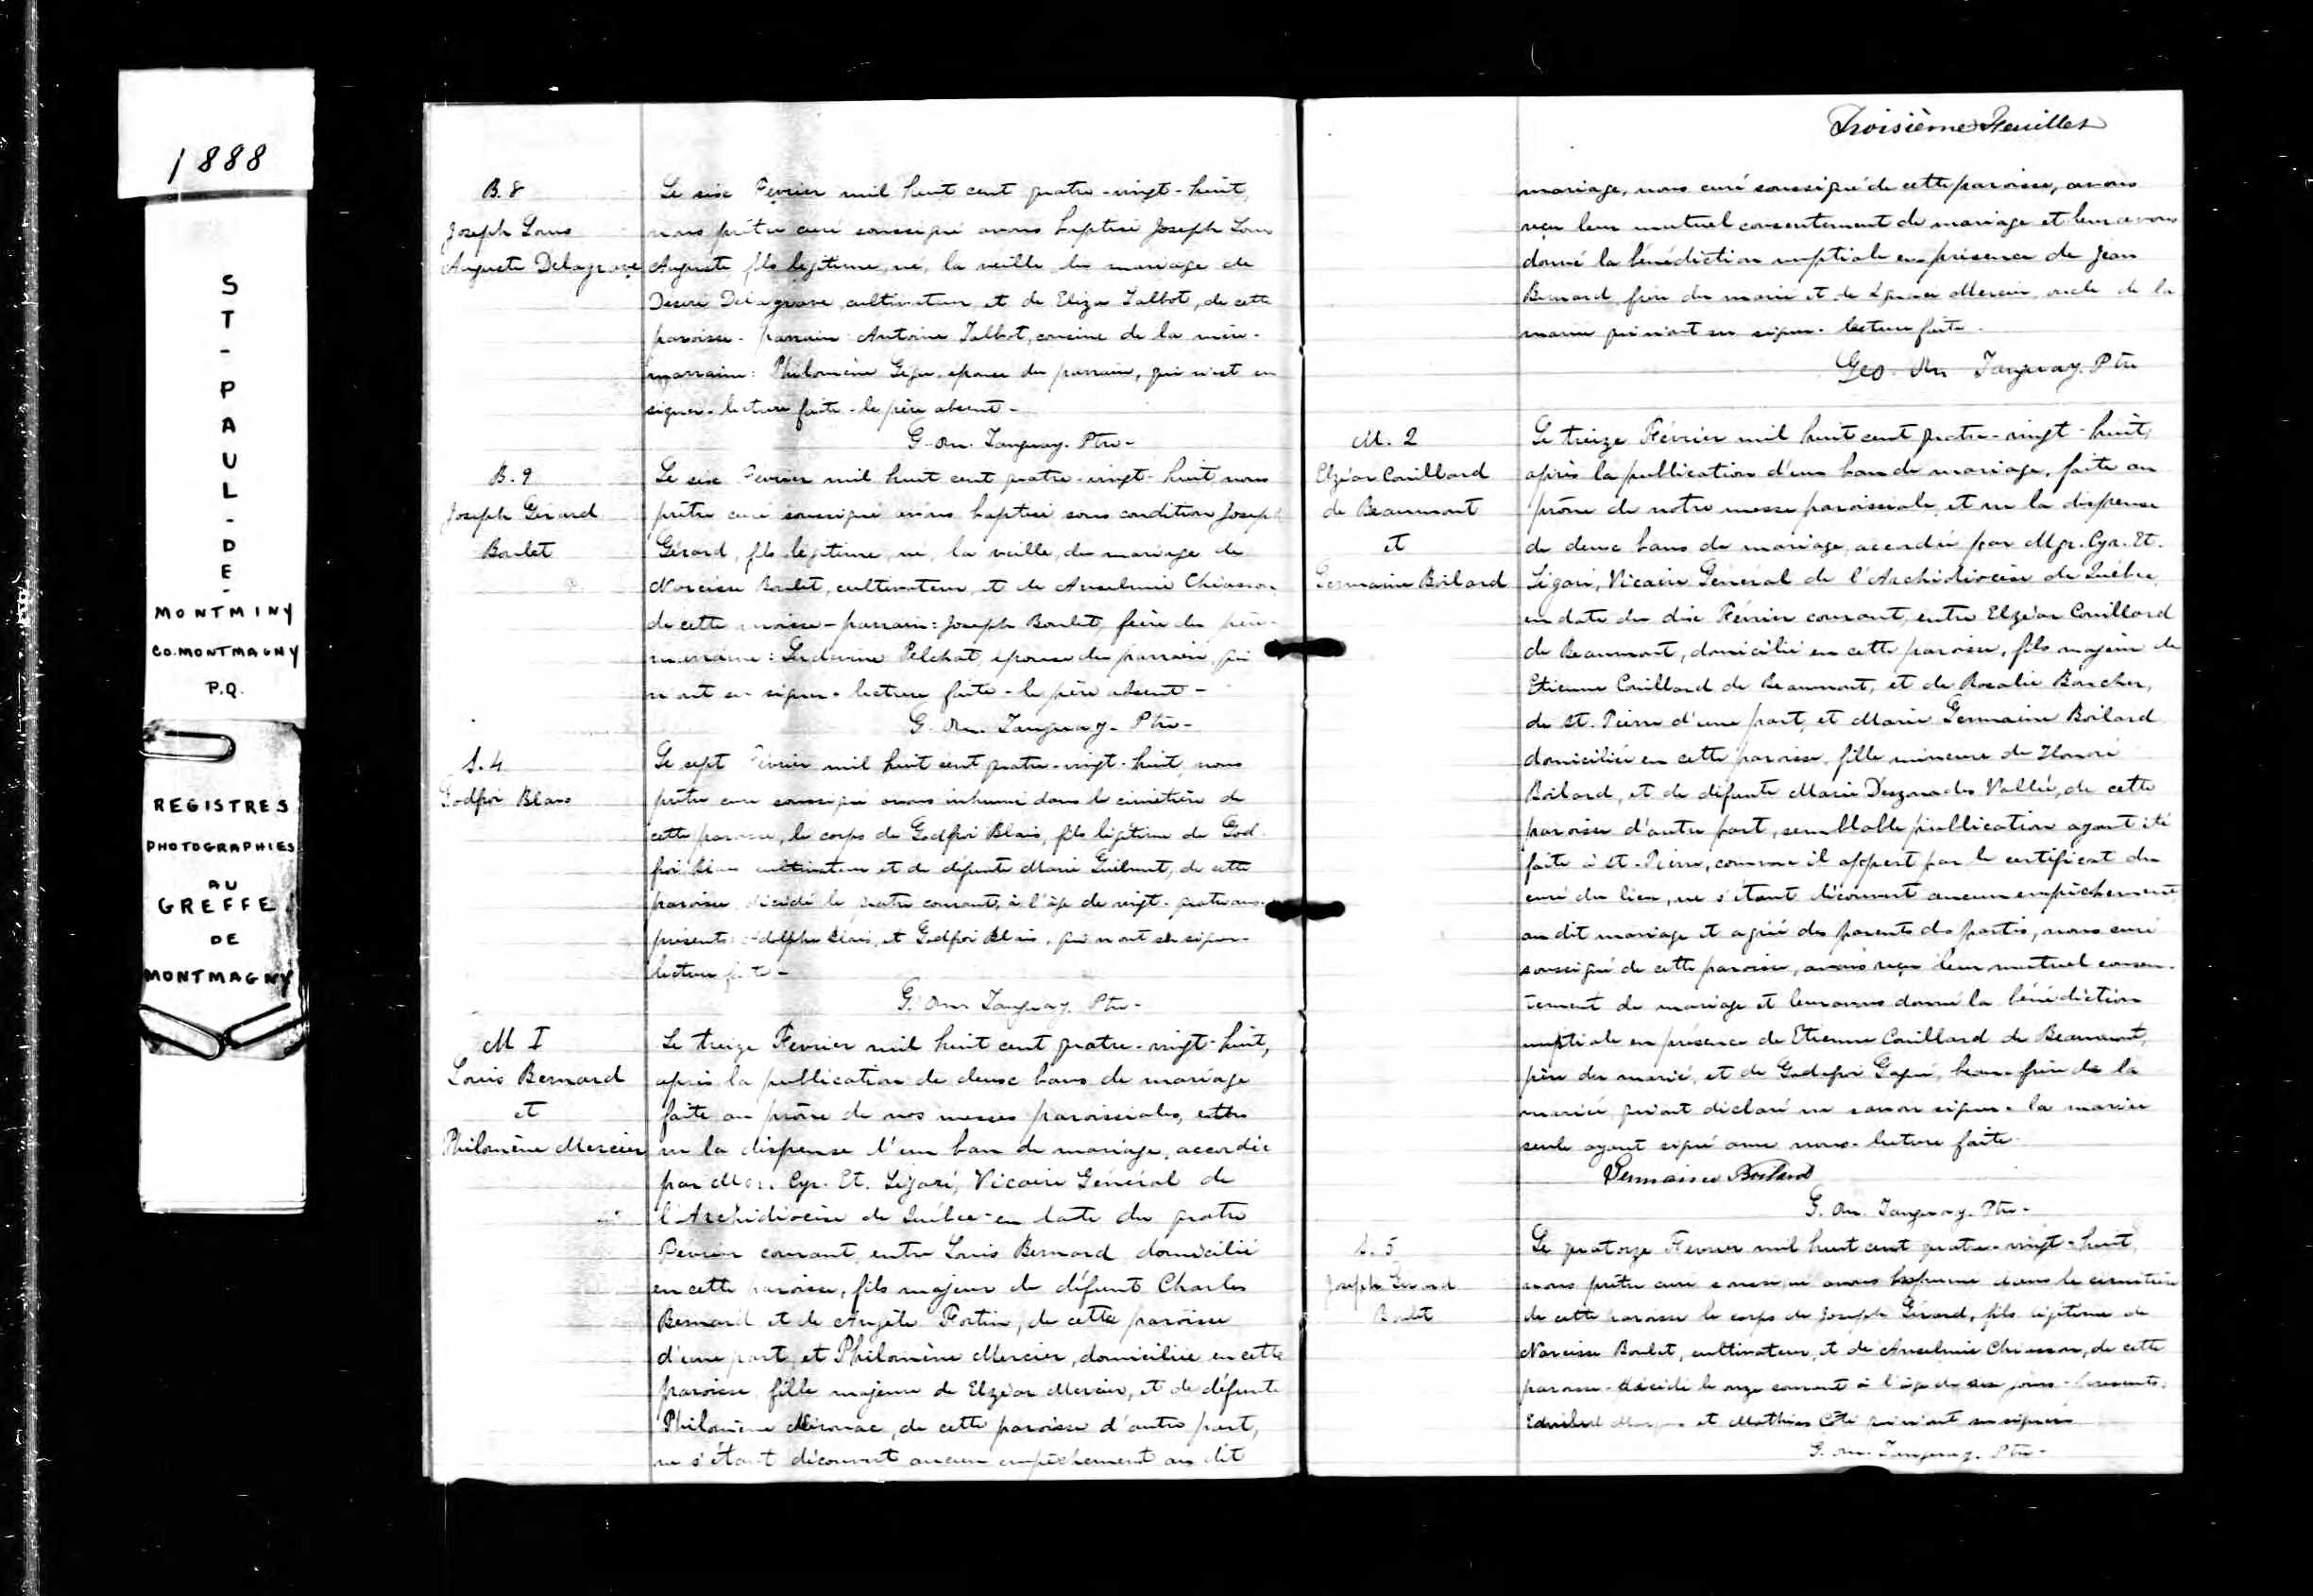 1888
ST-PAUL-DE-
MONTMINY
CO. MONTMAGNY
P.Q.
REGISTRES
PHOTOGRAPHIES
AU
GREFFE
DE
MONTMAGNY
B. 8
Joseph Louis
Auguste Delagrave
Le six Fevrier mil huit cent quatre-vingt-huit,
nous prêtre curé soussigné avons baptisé Joseph Louis
Auguste fils légitime, né, la veille du mariage de
Désiré Delagrave, cultivateur, et de Eliza Talbot, de cette
paroisse - parrain: Antoine Talbot, cousine de la mère -
marraine: Philomène épouse du parrain, qui n'ont su
signer - lecture faite - le père absent -
G. On. Tanguay. Ptre -
B. 9
Joseph Gérard
Boulet
Le six Fevrier mil huit cent quatre-vingt-huit, nous
prêtre curé soussigné avons baptisé sous condition Joseph
Gérard, fils légitime, né, la veille, du mariage de
Narcisse Boulet, cultivateur, et de Anselmie Chiasson
de cette paroisse - parrain: Joseph Boulet, frère du père -
marraine: Pelchat, épouse du parrain, qui
n'ont su signer - lecture faite - le père absent -
G. On. Tanguay - Ptre -
S. 4
Godfroi Blais
Le sept Février mil huit cent quatre-vingt-huit, nous
prêtre curé soussigné avons inhumé dans le cimetière de
cette paroisse, le corps de Godfroi Blais, fils légitime de God-
froi Blais cultivateur et de défunte Marie Guilmet, de cette
paroisse, décédé le quatre courant, à l'âge de vingt-quatre ans -
présents: Adolphe Blais, et Godfroi Blais, qui n'ont su signer -
lecture faite -
G. On. Tanguay. Ptre -
M I
Louis Bernard
et
Philomène Mercier
Le treize Fevrier mil huit cent quatre-vingt-huit,
après la publication de deux bans de mariage
faite au prône de nos messes paroissiales, et
vu la dispense d'un ban de mariage, accordée
par Mgr. Cyr. Et. Légaré, Vicaire Général de
l'Archidiocèse de Québec - en date du quatre
Février courant, entre Louis Bernard domicilié
en cette paroisse, fils majeur de défunt Charles
Bernard et de Angèle Fortin, de cette paroisse
d'une part, et Philomène Mercier, domiciliée en cette
paroisse, fille majeure de Elzéar Mercier, et de défunte
Philomène de cette paroisse d'autre part,
ne s'étant découvert aucun empêchement au dit
Troisième Feuillet
mariage, nous curé soussigné de cette paroisse, avons
reçu leur mutuel consentement de mariage et leur avons
donné la bénédiction nuptiale en présence de Jean
Bernard, frère du marié et de Ignace Mercier, oncle de la
mariée qui n'ont su signer - lecture faite -
Geo. On Tanguay. Ptre
M. 2
Elzéar Couillard
de Beaumont
et
Germaine Boilard
Le treize Février mil huit cent quatre-vingt-huit,
après la publication d'un ban de mariage, faite au
prône de notre messe paroissiale, et vu la dispense
de deux bans de mariage accordée par Mgr. Cyr. Et.
Légaré, Vicaire Général de l'Archidiocèse de Québec,
en date du dix Février courant, entre Elzéar Couillard
de Beaumont, domicilié en cette paroisse, fils majeur de
Etienne Couillard de Beaumont, et de Rosalie Boucher,
de St. Pierre d'une part, et Marie Germaine Boilard
domiciliée en cette paroisse, fille mineure de Honoré
Boilard, et de défunte Marie Desgardes Vallée, de cette
paroisse d'autre part, semblable publication ayant été
faite à St. Pierre, comme il appert par le certificat du
curé du lieu, ne s'étant découvert aucun empêchement
au dit mariage et agréé des parents des parties, nous curé
soussigné de cette paroisse, avons reçu leur mutuel consen-
tement de mariage et leur avons donné la bénédiction
nuptiale en présence de Etienne Couillard de Beaumont,
père du marié, et de Godefroi Gagné, beau-frère de la
mariée qui ont déclaré ne savoir signer - la mariée
seule ayant signé avec nous - lecture faite -
Germaine Boilard
G. On. Tanguay. Ptre -
S. 5
Joseph Gérard
Boulet
Le quatorze Fevrier mil huit cent quatre-vingt-huit,
nous prêtre curé soussigné avons inhumé dans le cimetière
de cette paroisse le corps de Joseph Gérard, fils légitime de
Narcisse Boulet, cultivateur, et de Anselmie Chiasson, de cette
paroisse - décédé le onze courant à l'âge de six jours - présents:
et Mathias Côté qui n'ont su signer
G. On. Tanguay. Ptre -